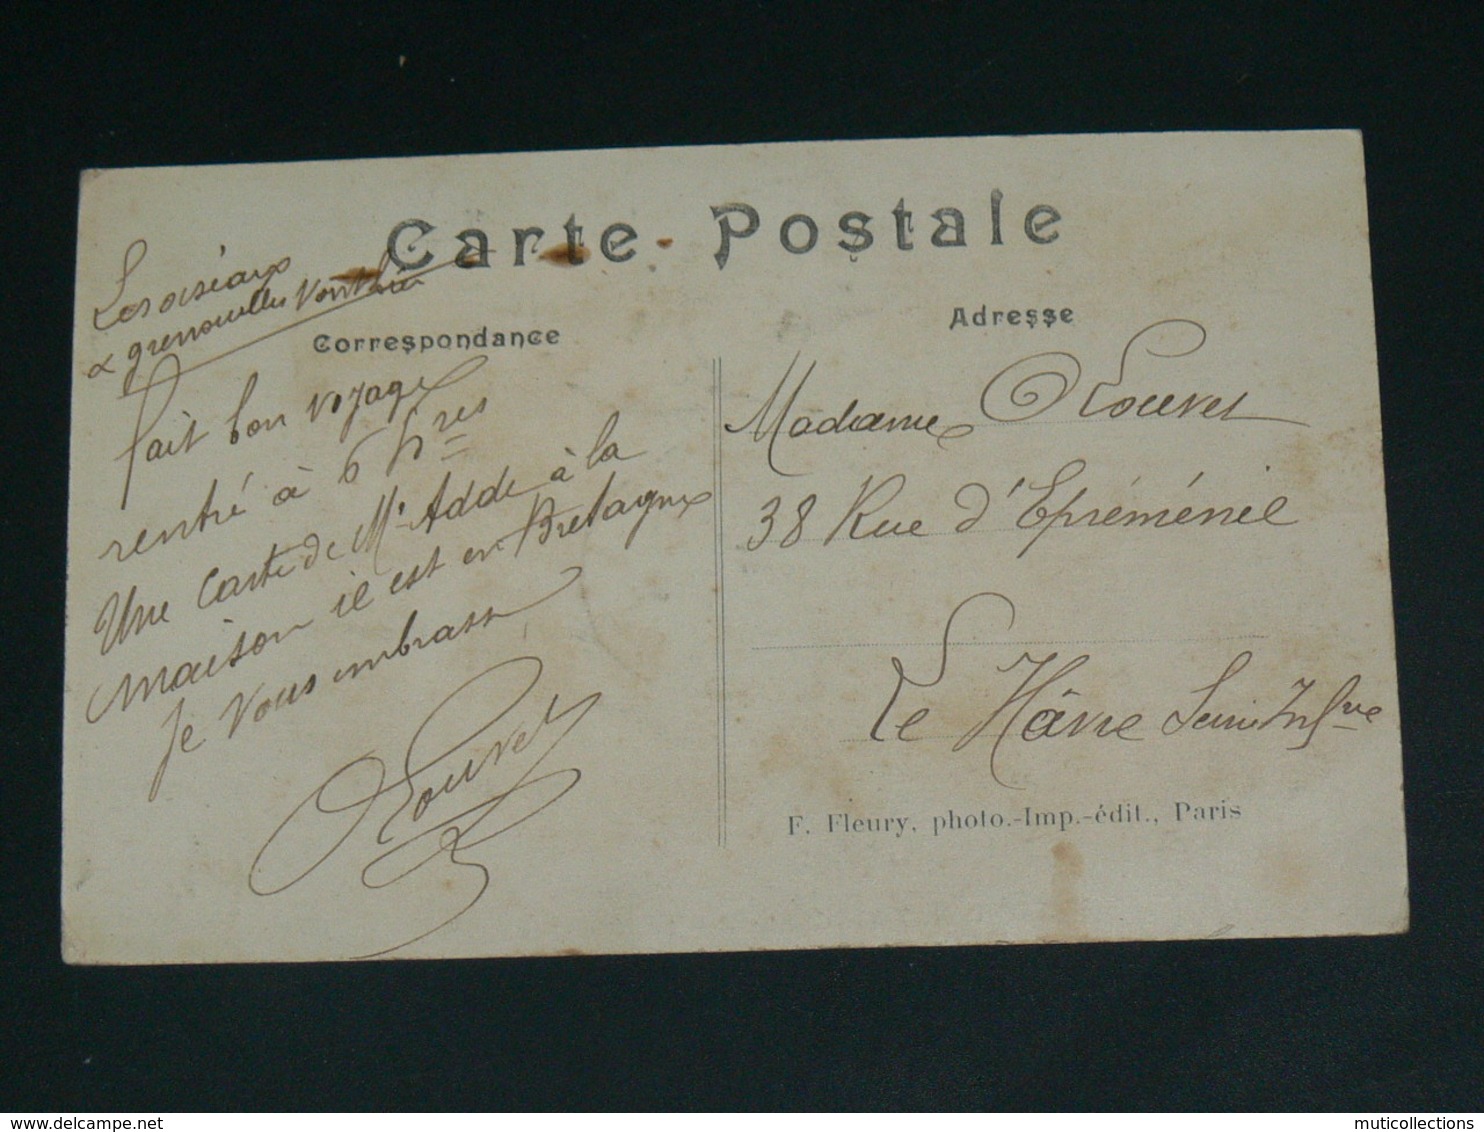 Carte Postale
Les oiseaux
& grenouilles vont bien
Correspondance
fait bon voyage
rentré à 6 hres
Une carte de Mr Adde à la
maison il est en Bretagne
Je vous embrasse
Louvet
Adresse
Madame Louvet
38 Rue d'Epréménil
Le Hâvre Seine Infre
F. Fleury, photo.-Imp.-édit., Paris
muticollections